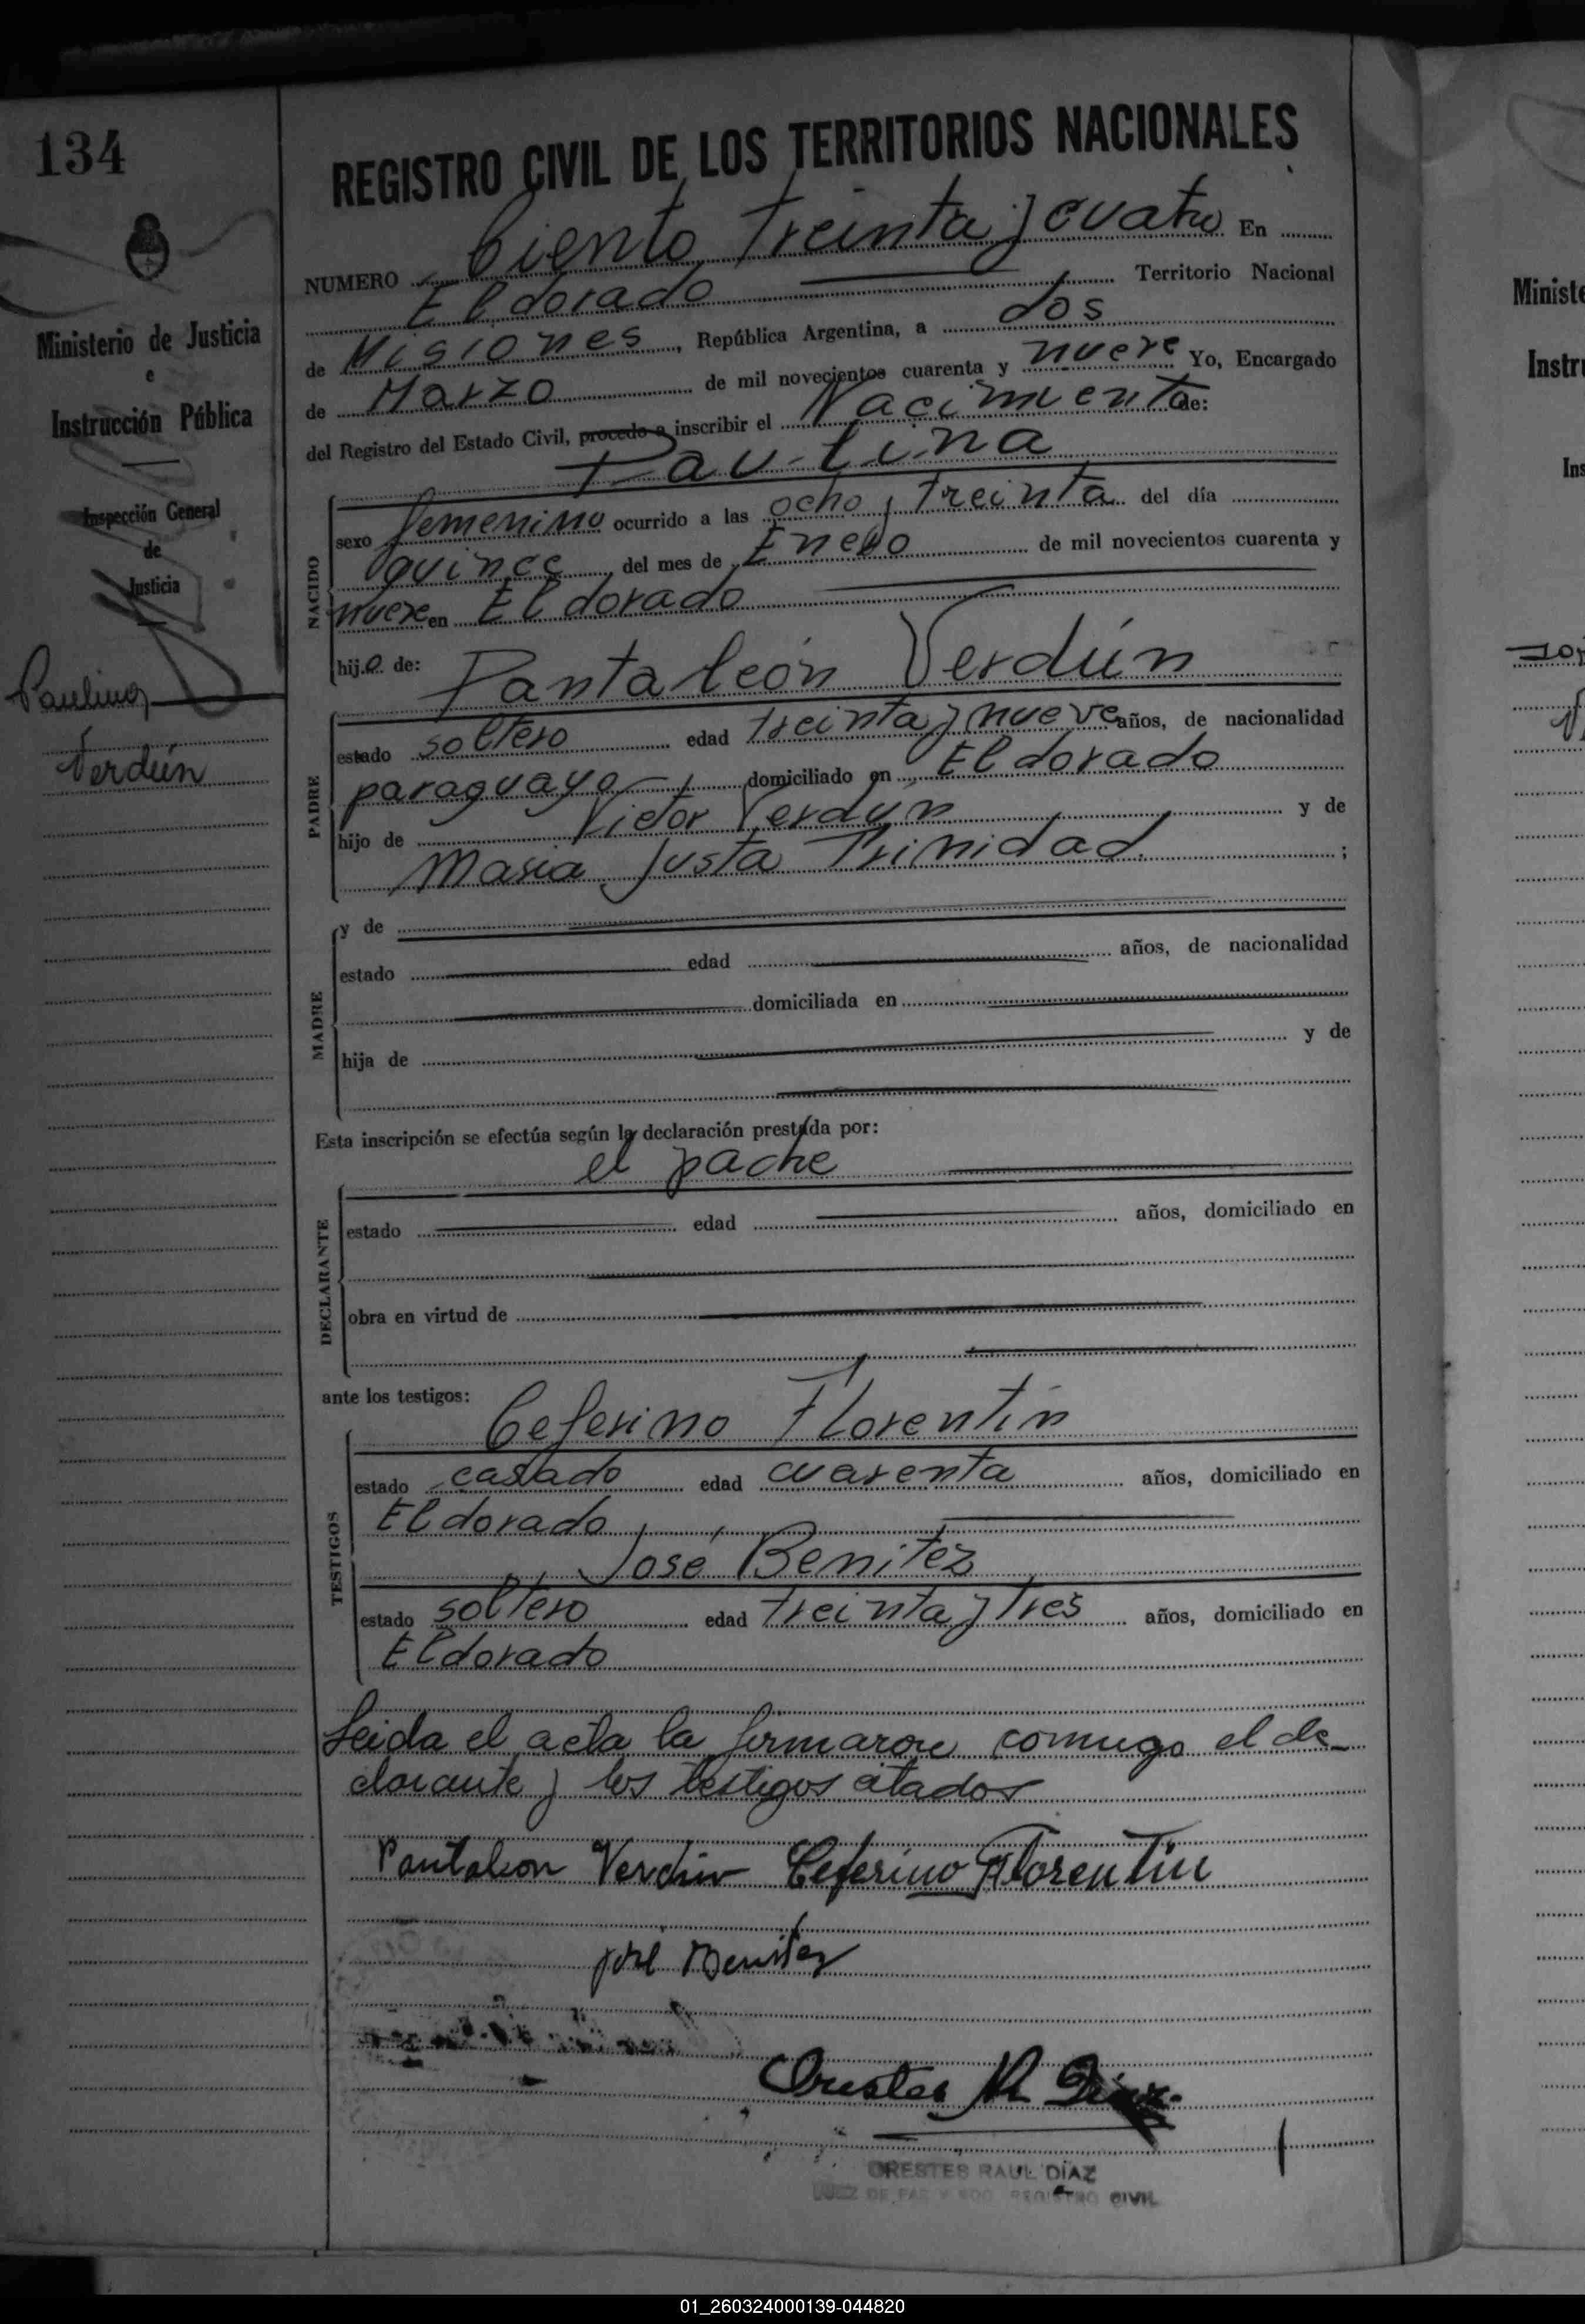 134
REGISTRO CIVIL DE LOS TERRITORIOS NACIONALES
NUMERO Ciento treinta y cuatro En
Eldorado Territorio Nacional
de Misiones, República Argentina, a dos
de Marzo de mil novecientos cuarenta y nueve Yo, Encargado
del Registro del Estado Civil, procedo a inscribir el Nacimiento de:
Paulina
NACIDO
sexo femenino ocurrido a las ocho y treinta del día
quince del mes de Enero de mil novecientos cuarenta y
nueve en Eldorado
hija de: Pantaleón Verdún
PADRE
estado soltero edad treinta y nueve años, de nacionalidad
paraguayo domiciliado en Eldorado
hijo de Victor Verdún y de
Maria Justa Trinidad ;
MADRE
y de
estado edad años, de nacionalidad
domiciliada en
hija de y de
Esta inscripción se efectúa según la declaración prestada por:
el padre
DECLARANTE
estado edad años, domiciliado en
obra en virtud de
ante los testigos:
Ceferino Florentín
TESTIGOS
estado casado edad cuarenta años, domiciliado en
Eldorado
José Benitez
estado soltero edad treinta y tres años, domiciliado en
Eldorado
Leida el acta la firmaron conmigo el de-
clarante y los testigos citados
Pantaleon Verdun Ceferino Florentin
José Benitez
Orestes R Díaz
ORESTES RAUL DÍAZ
JUEZ DE PAZ Y EDO. REGISTRO CIVIL
Ministerio de Justicia
e
Instrucción Pública
Inspección General
de
Justicia
Paulina
Verdún
Ministe
Instr
Ins
01_260324000139-044820